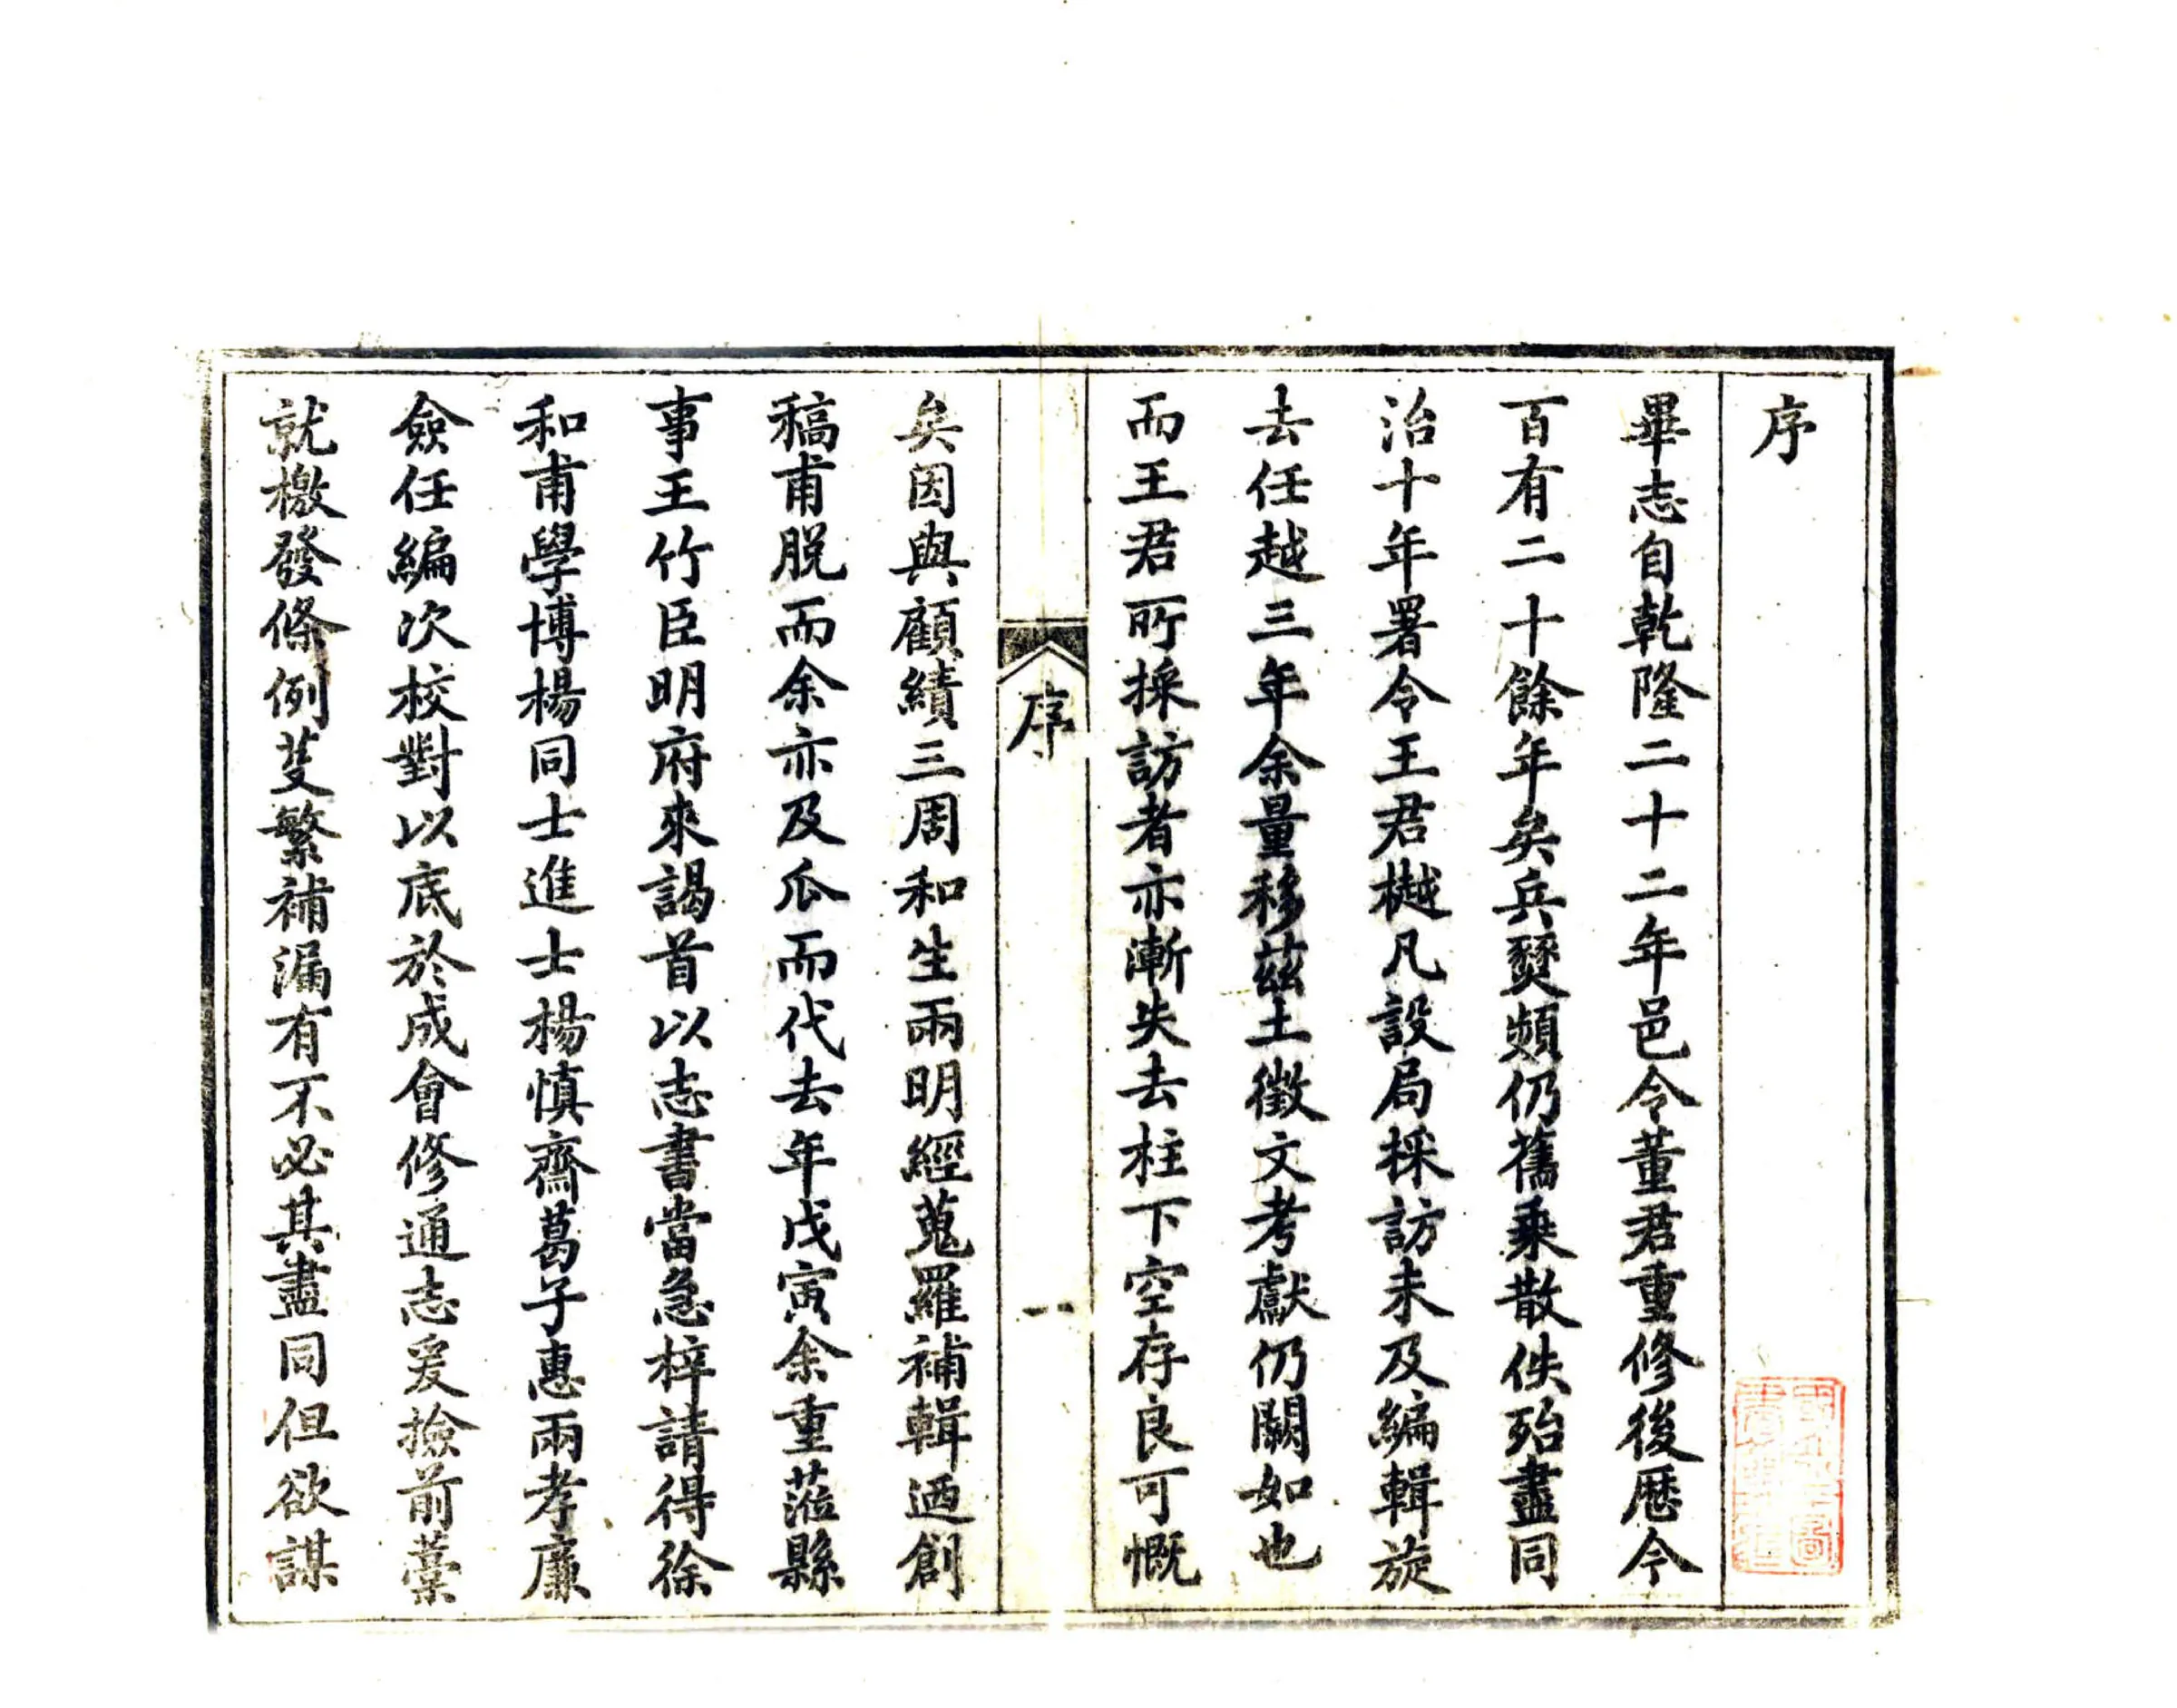 序
畢志自乾隆二十二年邑令董君重修後歷今
百有二十餘年矣兵燹頻仍舊乘散佚殆盡同
治十年署令王君樾凡設局採訪未及編輯旋
去任越三年余量移茲土徵文考獻仍闕如也
而王君所採訪者亦漸失去柱下空存良可慨
序
一
矣因與顧績三周和生兩明經蒐羅補輯迺創
稿甫脱而余亦及瓜而代去年戊寅余重蒞縣
事王竹臣明府來謁首以志書當急梓請得徐
和甫學博楊同士進士楊慎齋葛子惠兩孝廉
僉任編次校對以底於成會修通志爰撿前藁
就檄發條例芟繁補漏有不必其盡同但欲謀